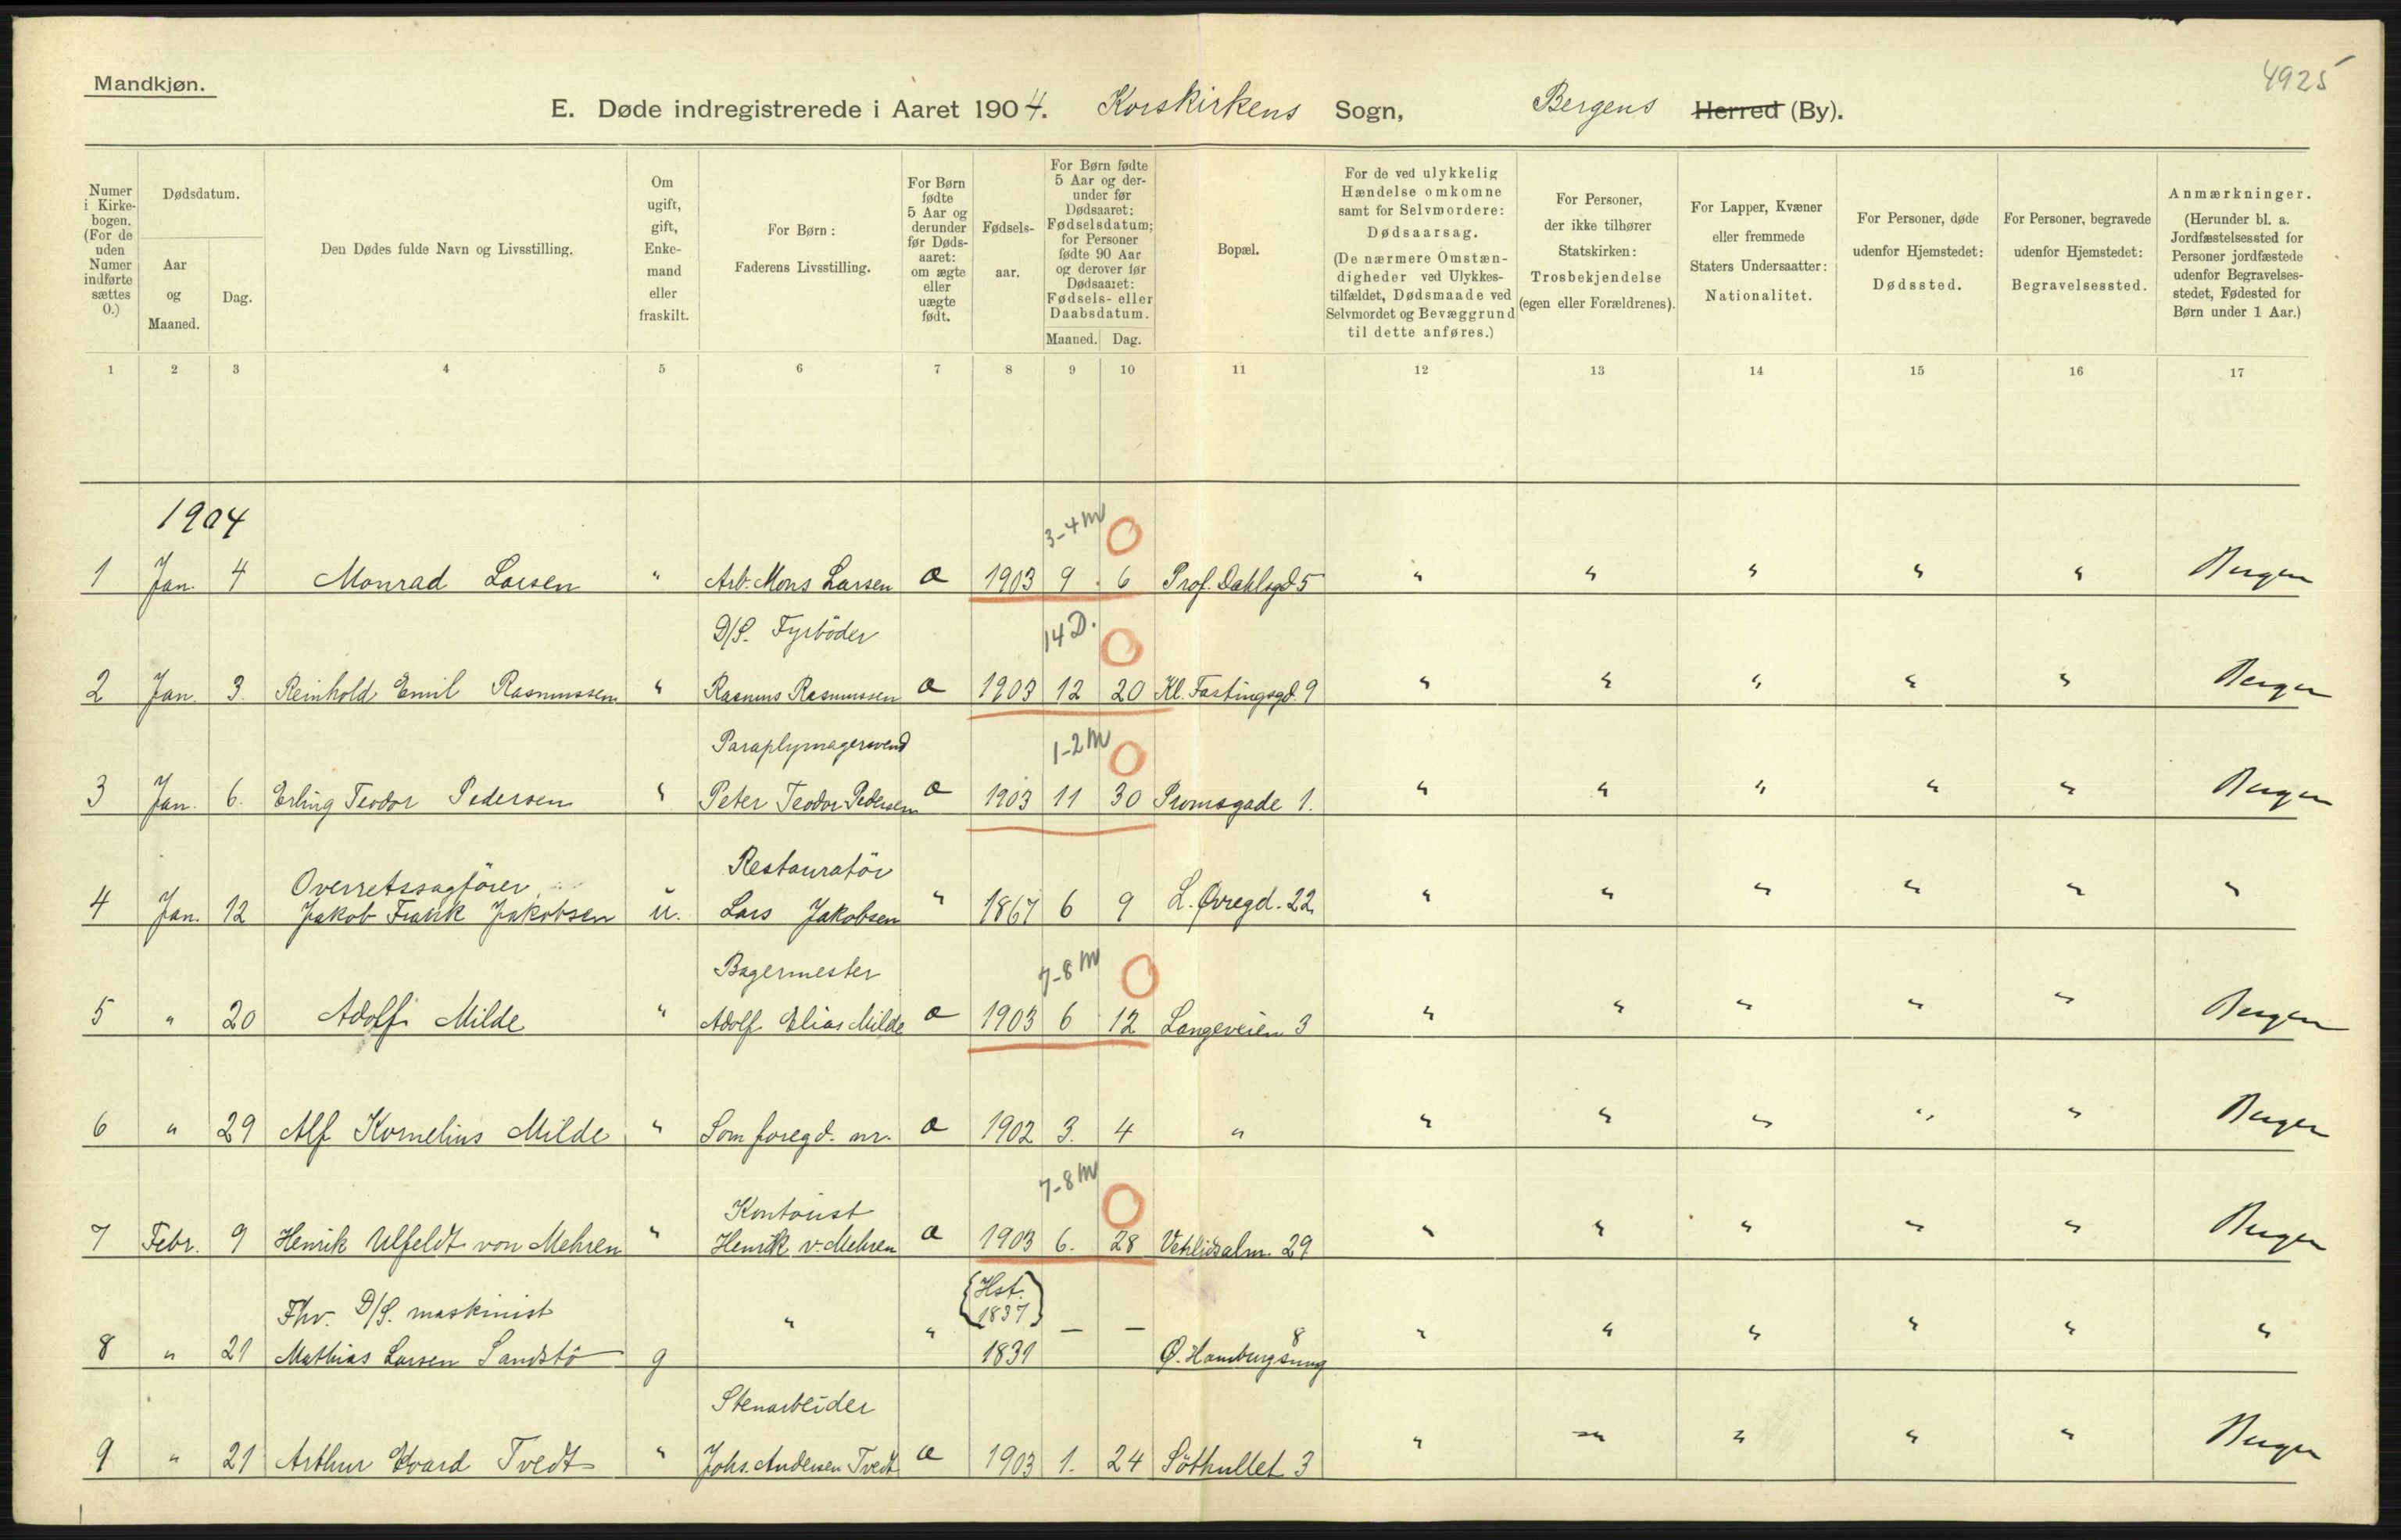 4925
Mandkjøn.
E. Døde indregistrerede i Aaret 1904. Korskirkens Sogn, Bergens Herred (By).
Numer i Kirke-bogen. (For de uden Numer indførte sættes 0.)
Dødsdatum.
Aar og Maaned.
Dag.
Den Dødes fulde Navn og Livsstilling.
Om ugift, gift, Enke-mand eller fraskilt.
For Børn: Faderens Livsstilling.
For Børn fødte 5 Aar og derunder før Døds-aaret: om ægte eller uægte født.
Fødsels-aar.
For Børn fødte 5 Aar og der-under før Dødsaaret: Fødselsdatum; for Personer fødte 90 Aar og derover før Dødsaaret: Fødsels- eller Daabsdatum.
Maaned. Dag.
Bopæl.
For de ved ulykkelig Hændelse omkomne samt for Selvmordere: Dødsaarsag. (De nærmere Omstæn-digheder ved Ulykkes-tilfældet, Dødsmaade ved Selvmordet og Bevæggrund til dette anføres.)
For Personer, der ikke tilhører Statskirken: Trosbekjendelse (egen eller Forældrenes).
For Lapper, Kvæner eller fremmede Staters Undersaatter: Nationalitet.
For Personer, døde udenfor Hjemstedet: Dødssted.
For Personer, begravede udenfor Hjemstedet: Begravelsessted.
Anmærkninger. (Herunder bl. a. Jordfæstelsessted for Personer jordfæstede udenfor Begravelses-stedet, Fødested for Børn under 1 Aar.)
1 2 3 4 5 6 7 8 9 10 11 12 13 14 15 16 17
1904
3-4 M
1 Jan. 4 Monrad Larsen " Arb. Mons Larsen a 1903 9. 6 Prof. Dahlsgd 5 " " " " " Bergen
D/S. Fyrbøder 14 D.
2 Jan. 3. Reinhold Emil Rasmussen " Rasmus Rasmussen a 1903 12 20 Kl. Fastingsgd. 9 " " " " " Bergen
Paraplymagersvend 1-2 M
3 Jan. 6. Erling Teodor Pedersen " Peter Teodor Pedersen a 1903 11 30 Promsgade 1. " " " " " Bergen
Overretssagfører Restauratör
4 Jan. 12 Jakob Frank Jakobsen u. Lars Jakobsen " 1867 6 9 L. Øvregd. 22 " " " " " "
Bagermester 7-8 M
5 " 20 Adolf Milde " Adolf Elias Milde a 1903 6 12 Langeveien 3 " " " " " Bergen
6 " 29 Alf Kornelius Milde " Som foregd. nr. a 1902 3. 4 " " " " " " Bergen
Kontorist 7-8 M
7 Febr. 9 Henrik Ulfeldt von Mehren " Henrik v. Mehren a 1903 6. 28 Vetrlidsalm. 29 " " " " " Bergen
Fhv. D/S. maskinist " {Hst. 1837}
8 " 21 Mathias Larsen Sandstö g " 1831 — — Ø. Hamburgsmug 8 " " " " " "
Stenarbeider
9 " 21 Arthur Edvard Tvedt " Johs. Andersen Tvedt a 1903 1. 24 Söthullet 3 " " " " " Bergen